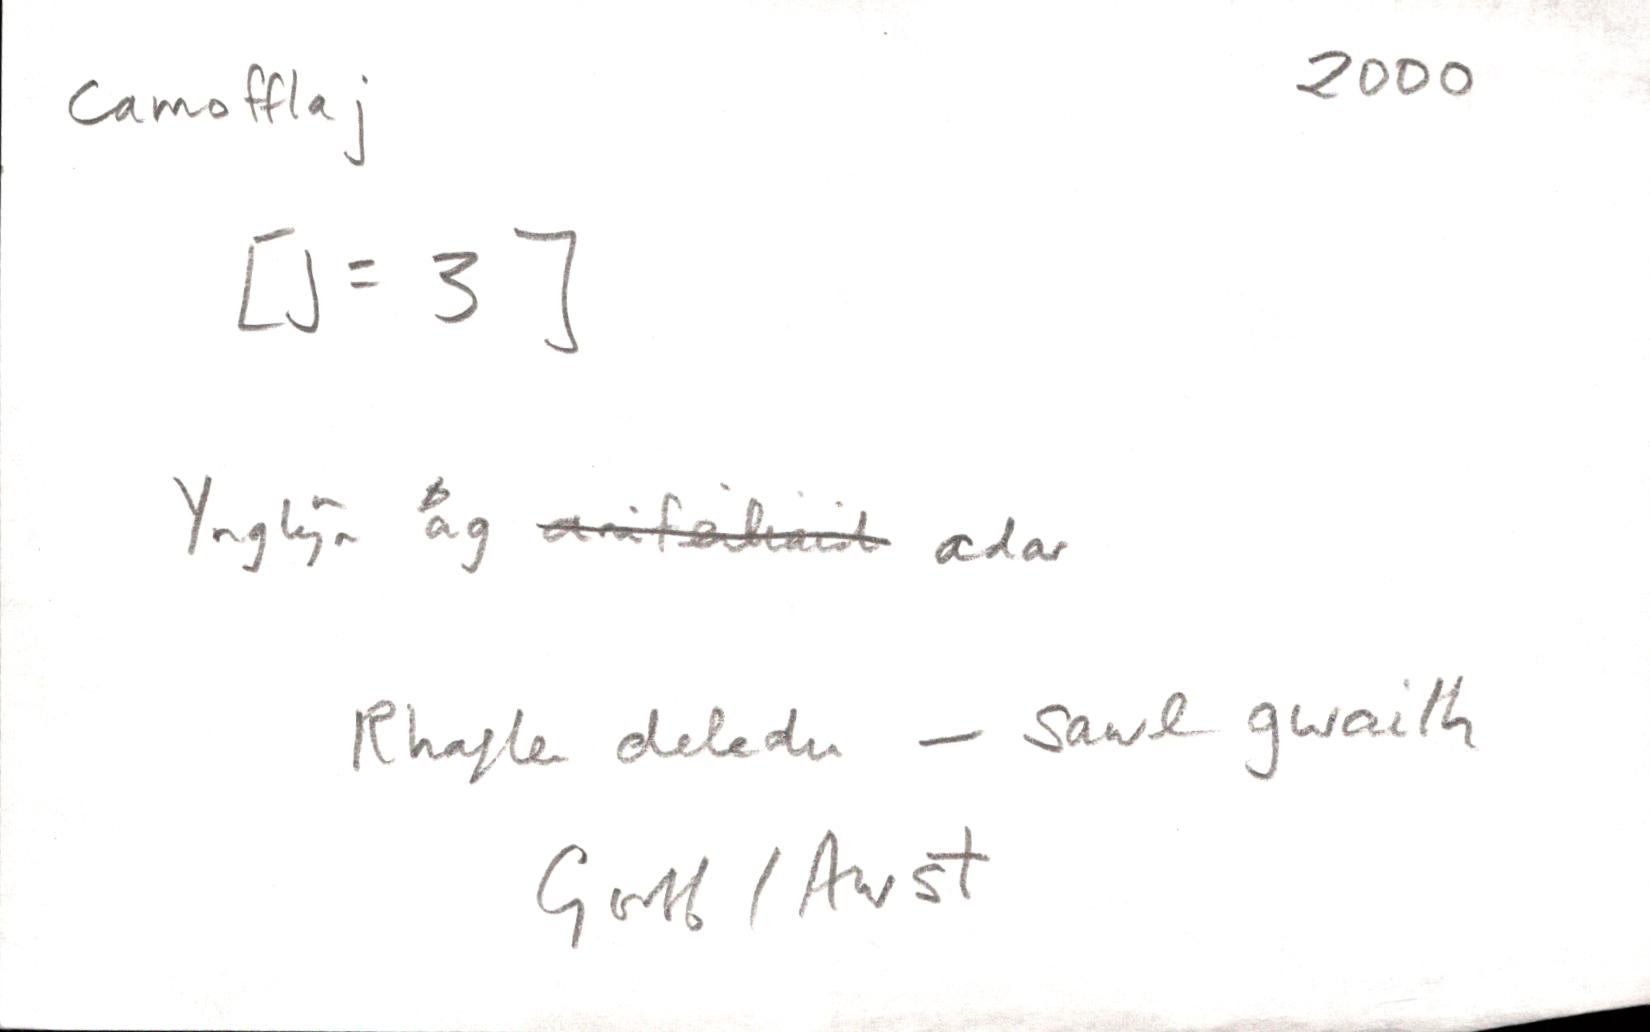 camofflaj 2000
[j = 3]
Ynglŷn âg ~~anifeiliaid~~ adar
Rhaglen deledu – sawl gwaith
Gorff / Awst